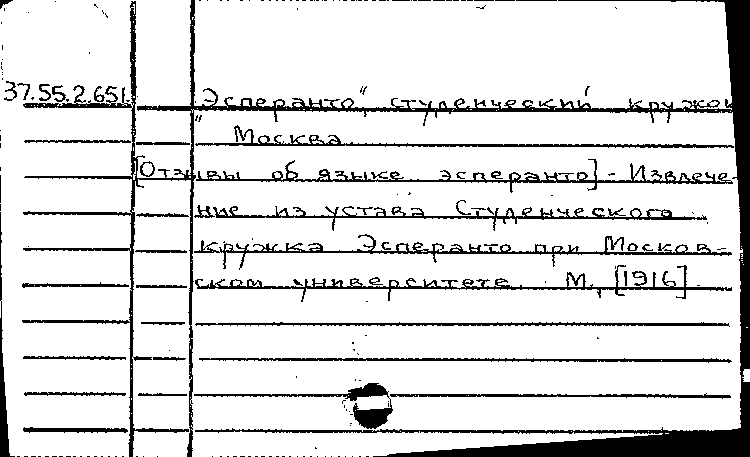 37.55.2.651. „Эсперанто“, студенческий кружок
Москва.
[Отзывы об языке эсперанто] - Извлече-
ние из устава Студенческого
кружка Эсперанто при Москов-
ском университете. М., [1916]